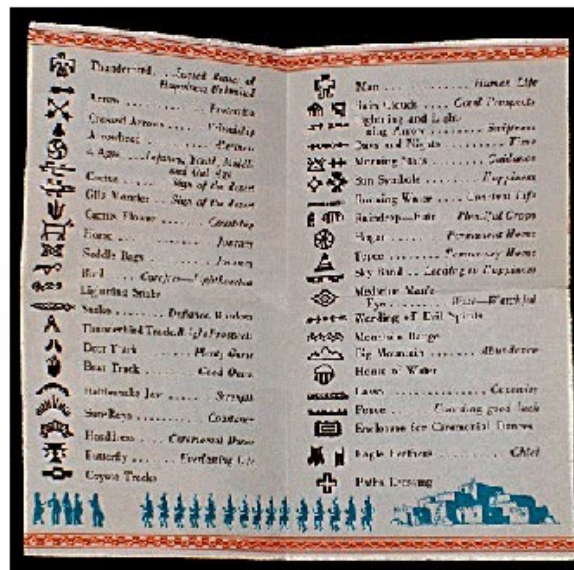 Thunderbird . . Sacred Bearer of
Happiness Unlimited
Arrow . . . . . . . Protection
Crossed Arrows . . . . . Friendship
Arrowhead . . . . . . . Alertness
4 Ages . . Infancy, Youth, Middle
and Old Age
Cactus . . . . Sign of the desert
Gila Monster . . Sign of the desert
Cactus Flower . . . . . Courtship
Horse . . . . . . . . Journey
Saddle Bags . . . . . . Journey
Bird . . . . Carefree—Lighthearted
Lightning Snake
Snake . . . . . Defiance, Wisdom
Thunderbird Track. Bright Prospects
Deer Track . . . . . Plenty Game
Bear Track . . . . . Good Omen
Rattlesnake Jaw . . . . . Strength
Sun Rays . . . . . . . Constancy
Headdress . . . Ceremonial Dance
Butterfly . . . . Everlasting Life
Coyote Tracks
Man . . . . . . . . Human Life
Rain Clouds . . . . Good Prospects
Lightning and Light-
ning Arrow . . . . . Swiftness
Days and Nights . . . . . Time
Morning Stars . . . . . Guidance
Sun Symbols . . . . . Happiness
Running Water . . . Constant Life
Raindrop—Rain . . Plentiful Crops
Hogan . . . . . . Permanent Home
Tepee . . . . . . Temporary Home
Sky Band . . Leading to Happiness
Medicine Man's
Eye . . . . . . Wise—Watchful
Warding off Evil Spirits
Mountain Range
Big Mountain . . . . . . Abundance
House of Water
Lasso . . . . . . . . Captivity
Fence . . . . Guarding good luck
Enclosure for Ceremonial Dances
Eagle Feathers . . . . . . Chief
Paths Crossing